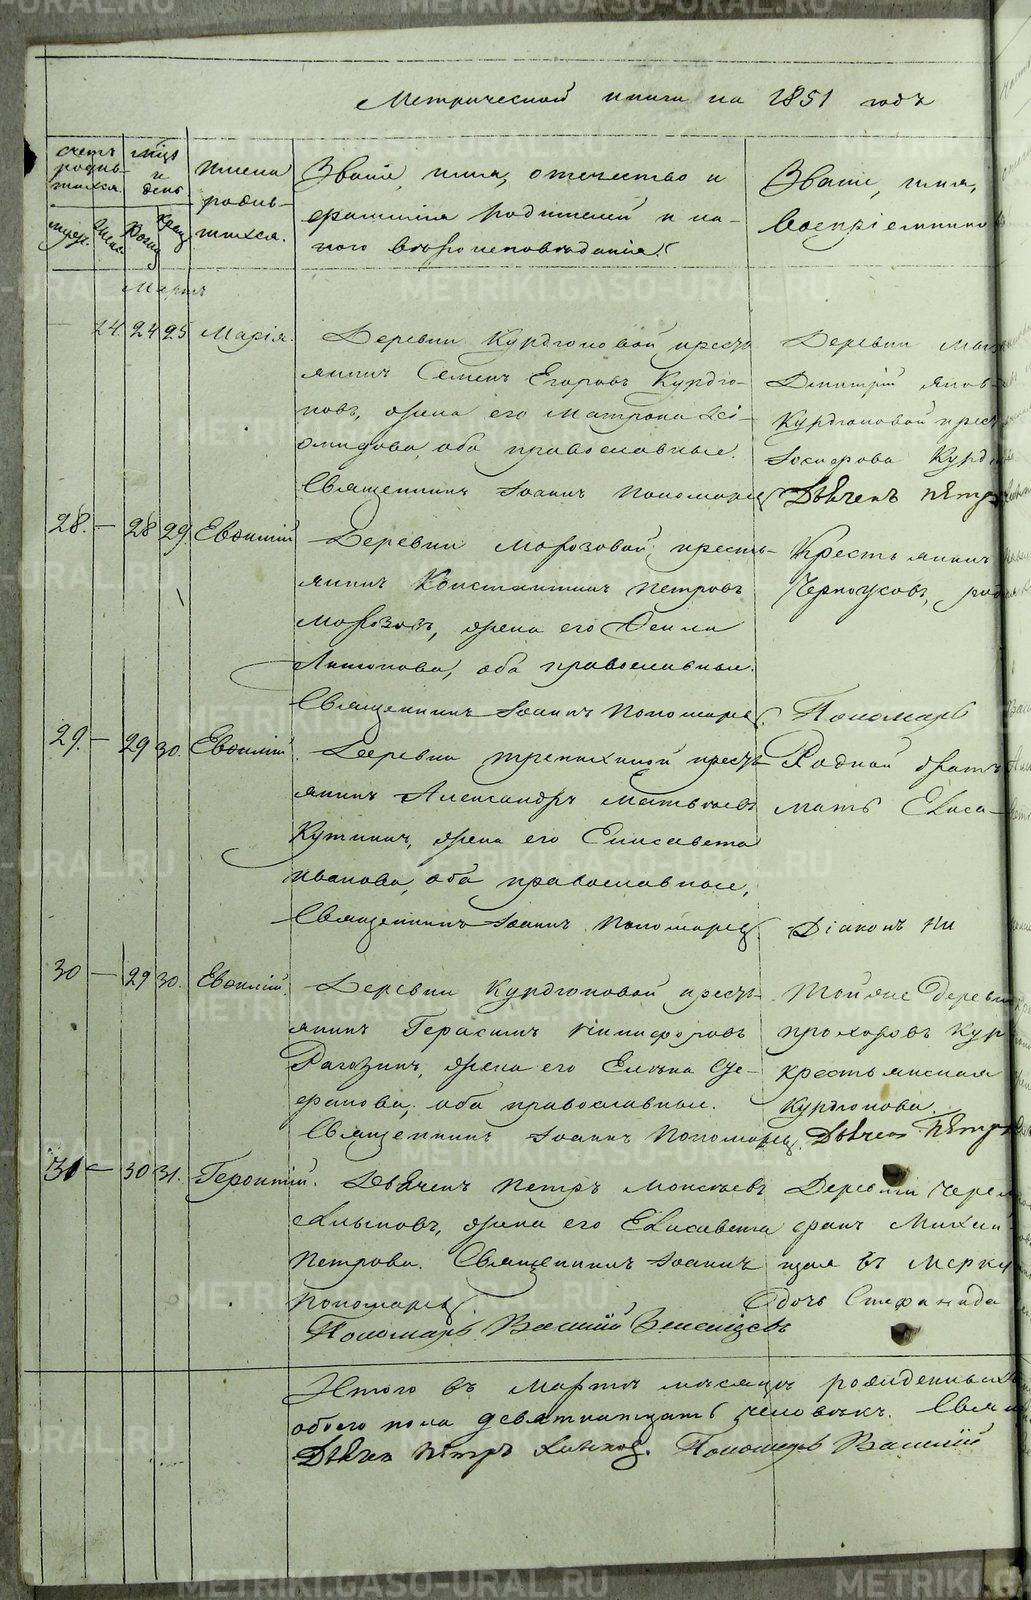 Метрической книги на 1851 годъ
счетъ родившихся
муж. жен.
мѣцъ и день
рожд. крещ.
имена родившихся.
Званіе, имя, отечество и
фамилія родителей и ка-
кого вѣроисповѣданія.
Званіе, имя,
Воспріемниковъ
Мартъ
24 24 25 Марія.
Деревни Курдюковой кресть-
янинъ Семенъ Егоровъ Курдю-
ковъ, жена его Матрона
оба православные.
Священникъ Іоаннъ Пономаревъ
Деревни
Дмитрій Яков-
Курдюковой крест
Іосифова Курдю
Дьячекъ Петръ
28. — 28 29. Евѳимій
Деревни Морозовой, кресть-
янинъ Константинъ Петровъ
Морозовъ, жена его Ѳекла
Антонова, оба православные.
Священникъ Іоаннъ Пономаревъ.
Крестьянинъ
Черноусовъ, род
Пономарь
29. — 29 30. Евѳимій.
Деревни кресть-
янинъ Александръ Матвѣевъ
жена его Елисавета
Иванова, оба православные,
Священникъ Іоаннъ Пономаревъ.
Родной братъ
мать Елиса-
Діаконъ Ни
30 — 29 30. Евѳимій.
Деревни Курдюковой кресть-
янинъ Герасимъ Никифоровъ
Рагозинъ, жена его Елена Сте-
фанова, оба православные.
Священникъ Іоаннъ Пономаревъ.
Той же деревни
Прохоровъ Кур
крестьянская
Курдюкова.
Дьячекъ Петръ
31 — 30 31. Геронтій.
Дьячекъ Петръ Моисѣевъ
жена его Елисавета
Петрова. Священникъ Іоаннъ
Пономаревъ.
Пономарь Василій
Деревни Черем
фанъ Михаи-
щая въ Мерку
дочь Стефанида
Итого въ Мартѣ мѣсяцѣ рожденныхъ
обоего пола девятнатцать человѣкъ. Свящ
Дьячекъ Петръ Пономарь Василій
METRIKI.GASO-URAL.RU